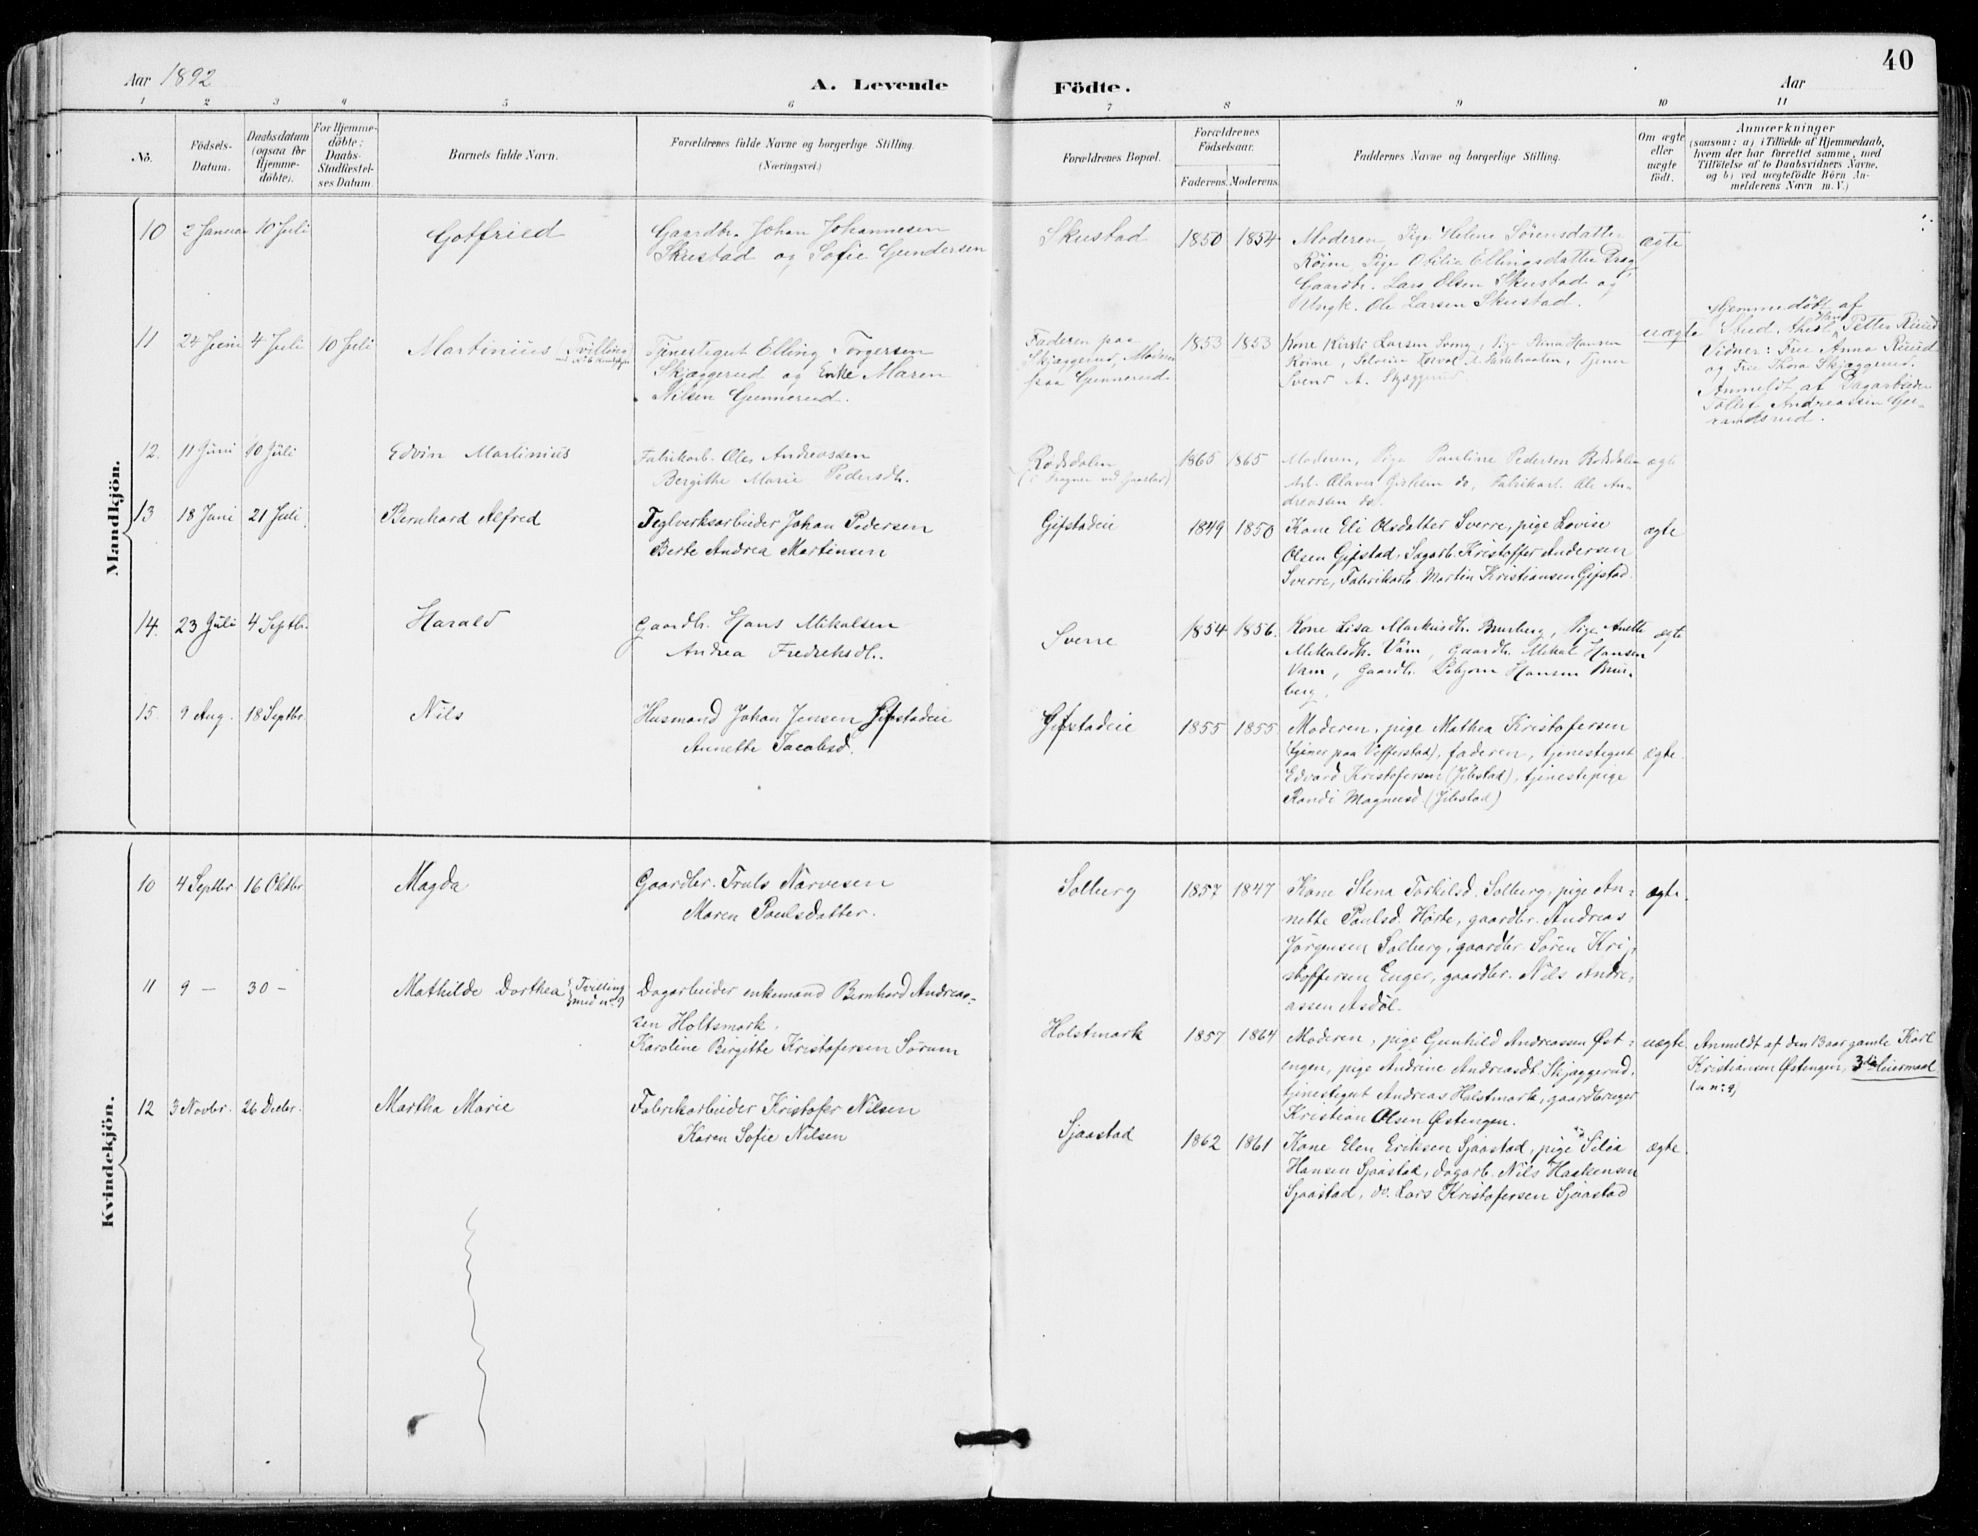 40
Aar 1892
A. Levende
Födte.
Aar
1 2 3 4 5 6 7 8 9 10 11
Nö.
Födsels-
Datum.
Daabsdatum
(ogsaa for
Hjemme-
döbte).
For Hjemme-
döbte:
Daabs-
Stadfæstel-
ses Datum.
Barnets fulde Navn.
Forældrenes fulde Navne og borgerlige Stilling.
(Næringsvei.)
Forældrenes Bopæl.
Forældrenes
Födselsaar.
Faderens. Moderens.
Faddernes Navne og borgerlige Stilling.
Om ægte
eller
uægte
födt.
Anmærkninger
(saasom: a) i Tilfælde af Hjemmedaab,
hvem der har forrettet samme, med
Tilföielse af to Daabsvidners Navne,
og b) ved uægtefödte Börn An-
melderens Navn m. V.)
Mandkjön.
10
2 Januar
10 Juli
Gotfried
Gaardbr. Johan Johannesen
Skustad og Sofie Gundersen
Skustad
1850
1854
Moderen, Pige Helene Sörensdatter
Röine, Pige Otilie Ellingsdatter
Gaardbr. Lars Olsen Skustad og
Ungk. Ole Larsen Skustad.
ægte
11
24 Juni
4 Juli
10 Juli
Martinius (Tvilling
Tjenestegut Elling Torgersen
Skjæggerud og Enke Maren
Nilsen Gunnerud.
Faderen paa
Skjæggerud, Moderen
paa Gunnerud
1853
1853
Kone Kirsti Larsen, Pige Stina Hansen
Röine, Tjener
Svend A. Skjæggerud
uægte
Hjemmedöbt af
Stud. Petter Ruud
Vidner: Fru Anna Ruud
og Fru Thora Skjæggerud.
Anmeldt af Dagarbeider
Tollef Andreassen
12.
11 Juni
10 Juli
Edvin Martinius
Fabrikarb. Oles Andreassen
Bergithe Marie Pedersdtr.
Rödsdalen
1865
1865
Moderen, Pige Pauline Pedersen Rödsdalen
Arb. Olaves do, Fabrikarb. Ole An-
dreassen do.
ægte
13
18 Juni
21 Juli.
Bernhard Alfred
Teglverksarbeider Johan Pedersen
Berte Andrea Martinsen
Gifstadeie
1849
1850
Kone Eli Olsdatter Sverre, pige Lovise
Olsen Gifstad, Sagarb. Kristoffer Andersen
Sverre, Fabrikarb. Martin Kristiansen Gifstad.
ægte
14.
23 Juli
4 Septbr.
Harald
Gaardbr. Hans Mikalsen
Andrea Fredriksdtr.
Sverre
1854
1856.
Kone Lisa Markusdtr. Burberg, Pige Anette
Mikalsdtr. Vam, Gaardbr. Mikal Hansen
Vam, Gaardbr. Hansen Bur-
berg.
ægte
15.
9 Aug.
18 Septbr.
Nils
Husmand Johan Jensen Gifstadeie
Annette Jacobsd.
Gifstadeie
1855
1855.
Moderen, pige Mathea Kristofersen
(tjener paa Vefferstad), faderen, tjenestegut
Edvard Kristofersen (Jibstad), tjenestepige
Randi Magnusd. (Jibstad)
ægte.
Kvindekjön.
10
4 Septbr
16 Oktbr
Magda
Gaardbr. Truls Narvesen
Maren Paulsdatter.
Solberg
1857
1847
Kone Stina Torkilsd. Solberg, pige An-
nette Paulsd. Horte, gaardbr. Andreas
Jörgensen Solberg, gaardbr. Sören Kri-
stoffersen Enger, gaardbr. Nils Andre-
assen Asdöl.
ægte.
11
9 —
30 —
Mathilde Dorthea (Tvilling
med no. 9)
Dagarbeider enkemand Bernhard Andreas-
sen Holtsmark.
Karoline Birgitte Kristofersen Sörum
Holstmark
1857
1864
Moderen, pige Gunhild Andreassen Øst-
engen, pige Andrine Andreasdt. Skjæggerud,
tjenestegut Andreas Holstmark, gaardbruger
Kristian Olsen Østengen.
uægte
Anmeldt af den 13 aar gamle Karl
Kristiansen Østengen, 3die leiermaal
(a no. 9)
12
3 Novbr.
26 Decbr.
Martha Marie
Fabrikarbeider Kristofer Nilsen
Karen Sofie Nilsen
Sjaastad
1862
1861
Kone Elen Eriksen Sjaastad, pige Silia
Hansen Sjaastad, dagarb. Nils Haakensen
Sjaastad, do. Lars Kristofersen Sjaastad
ægte.